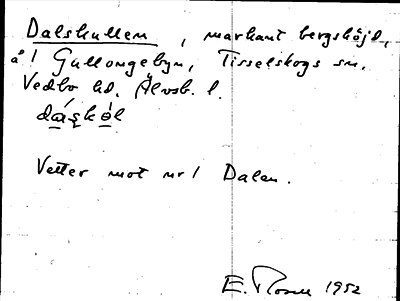 Dalskullen, markant bergshöjd,
å 1 Gullongebyn, Tisselskogs sn.
Vedbo hd. Älvsb. l.
Vetter mot nr 1 Dalen.
E. 1952